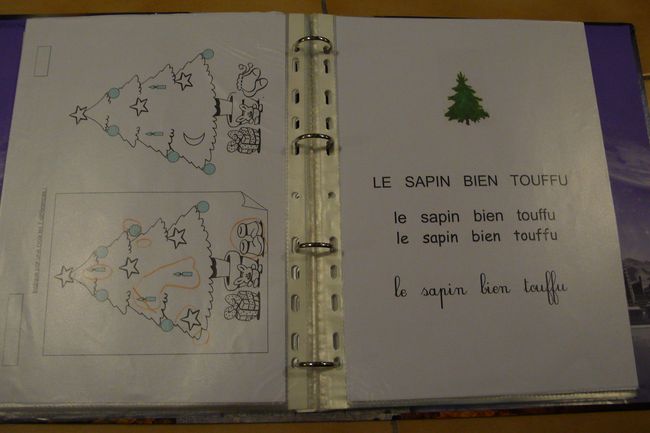 LE SAPIN BIEN TOUFFU
le sapin bien touffu
le sapin bien touffu
le sapin bien touffu